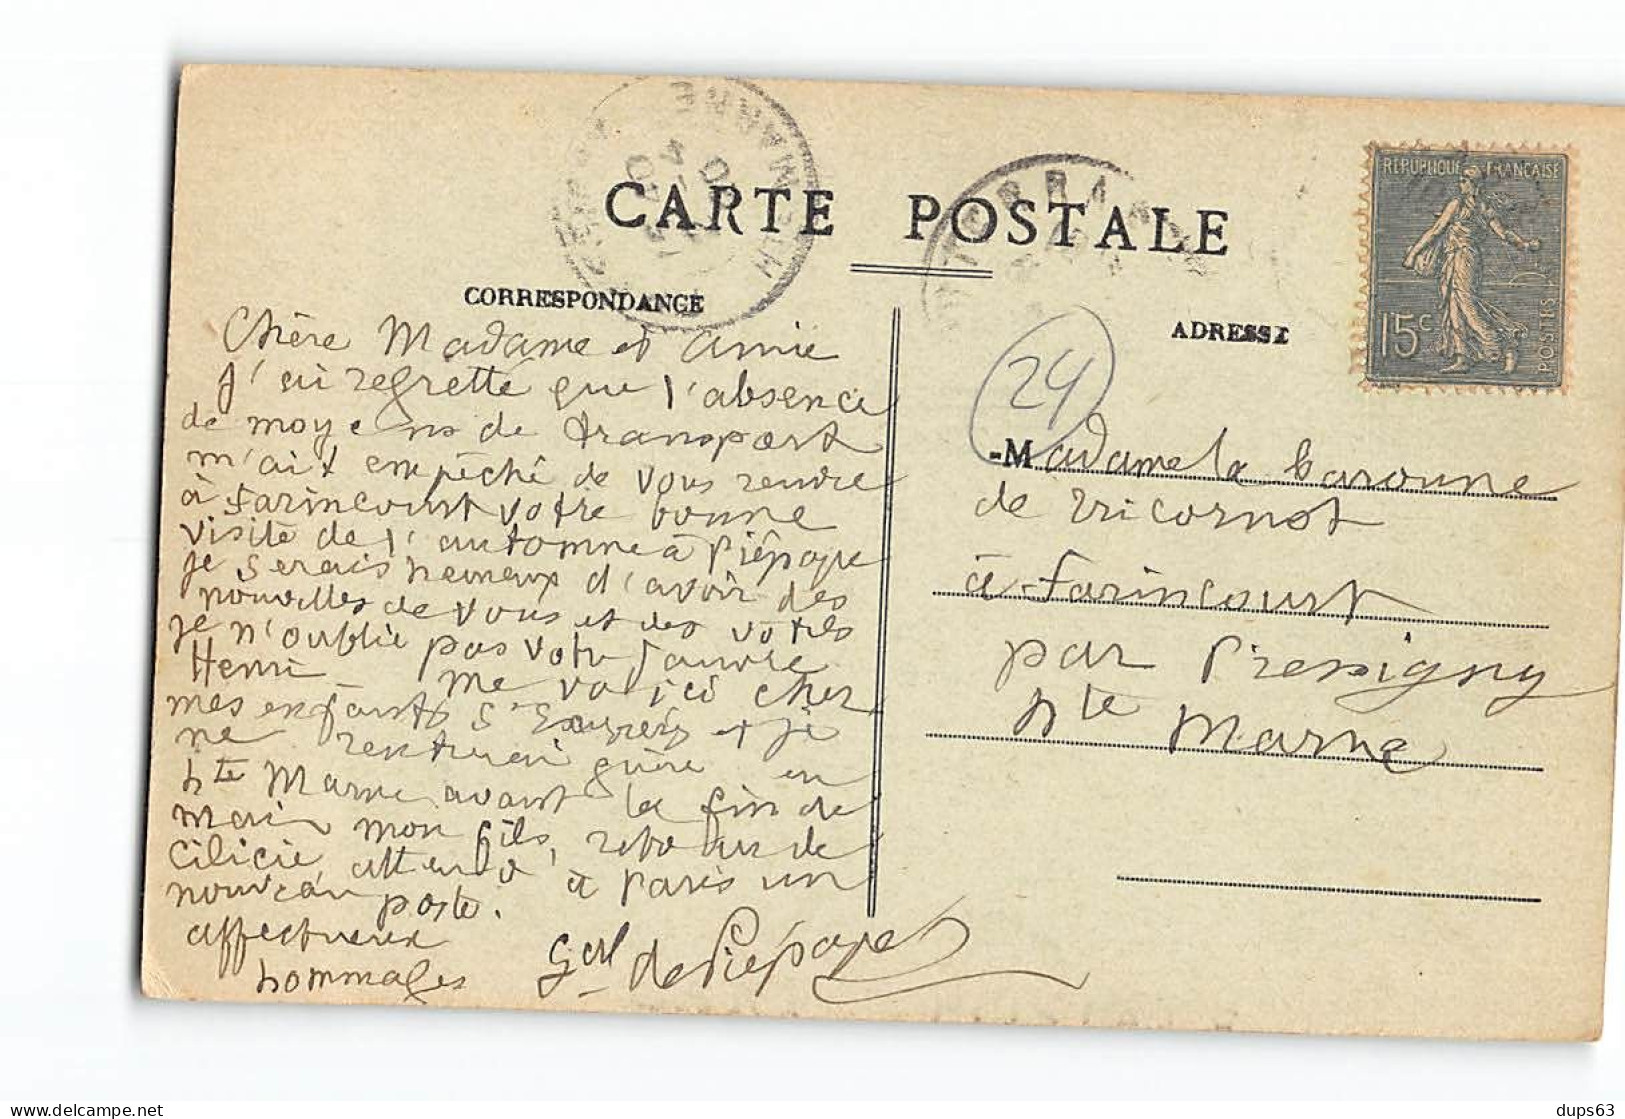 CARTE POSTALE
CORRESPONDANCE
Chère Madame et amie
J'ai regretté que l'absence
de moyens de transport
m'ait empêché de vous rendre
à Farincourt votre bonne
visite de l'automne à Piépape
je serais heureux d'avoir des
nouvelles de vous et des votres
je n'oublie pas votre pauvre
Henri me voici chez
mes enfants St Exupéry et je
ne rentrerai guère en
hte Marne avant la fin de
mai mon fils, retour de
Cilicie attend à Paris un
nouveau poste.
affectueux
hommages Gal de Piépape
MARNE
ADRESSE
REPUBLIQUE FRANÇAISE
15c
POSTES
24
-Madame la baronne
de Tricornot
à Farincourt
par Pressigny
hte Marne
dups63